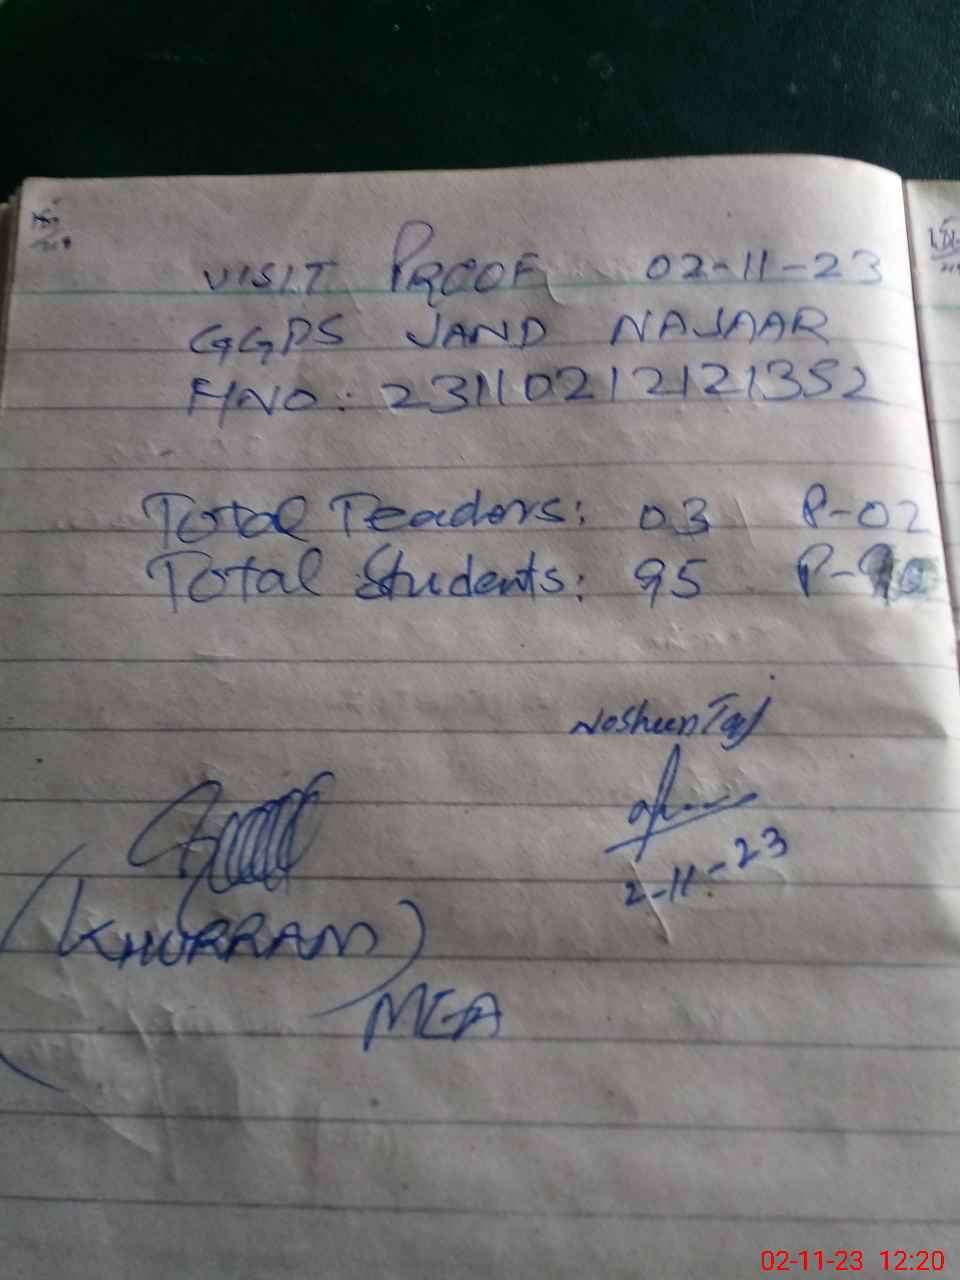 VISIT PROOF 02-11-23
GGPS JAND NAJAAR
HNO: 231102121213S2
Total Teachers: 03 P-02
Total Students: 95 P-
Nosheen Taj
2-11-23
(KHURRAM)
MEA
02-11-23 12:20